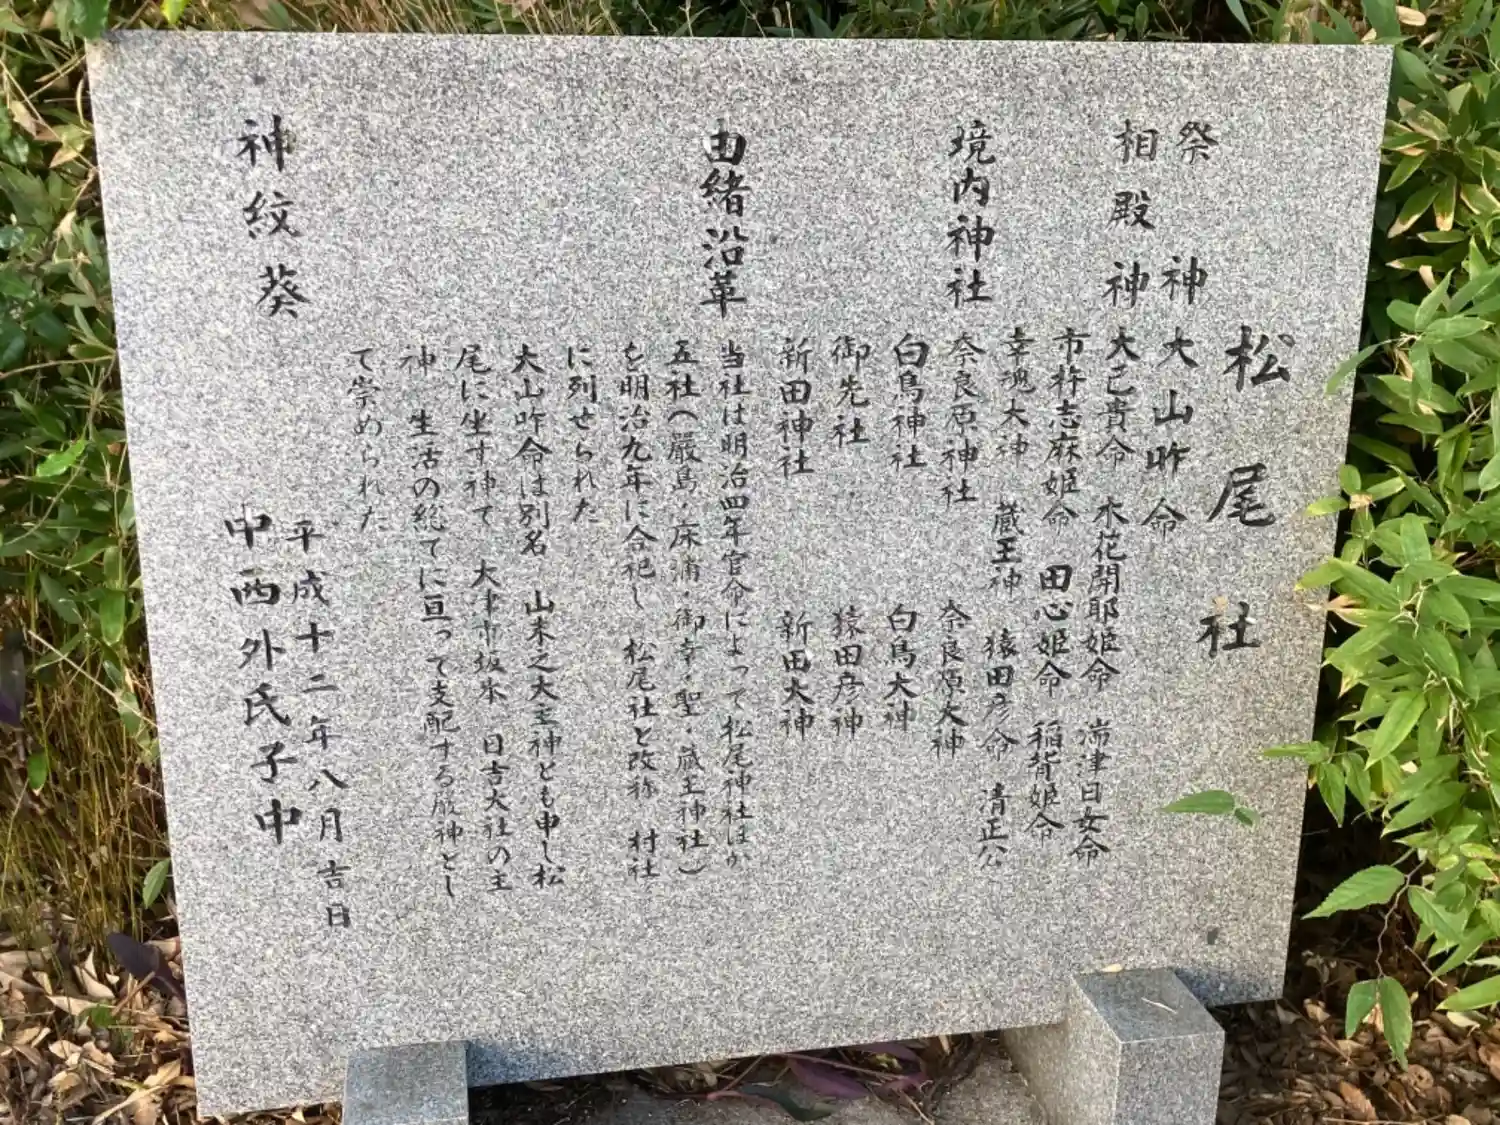 松尾社
祭神 大山咋命
相殿神 大己貴命 木花開耶姫命 湍津日女命
市杵志麻姫命 田心姫命 稲背姫命
幸魂大神 蔵王神 猿田彦命 清正公
境内神社 奈良原神社 奈良原大神
白鳥神社 白鳥大神
御先社 猿田彦神
新田神社 新田大神
由緒沿革 当社は明治四年官命によって松尾神社ほか
五社(厳島・床浦・御幸・聖・蔵王神社)
を明治九年に合祀し 松尾社と改称 村社
に列せられた
大山咋命は別名 山末之大主神とも申し松
尾に坐す神て 大津市坂本 日吉大社の主
神 生活の総てに亘って支配する神とし
て崇められた
神紋 葵
平成十二年八月吉日
中西外氏子中